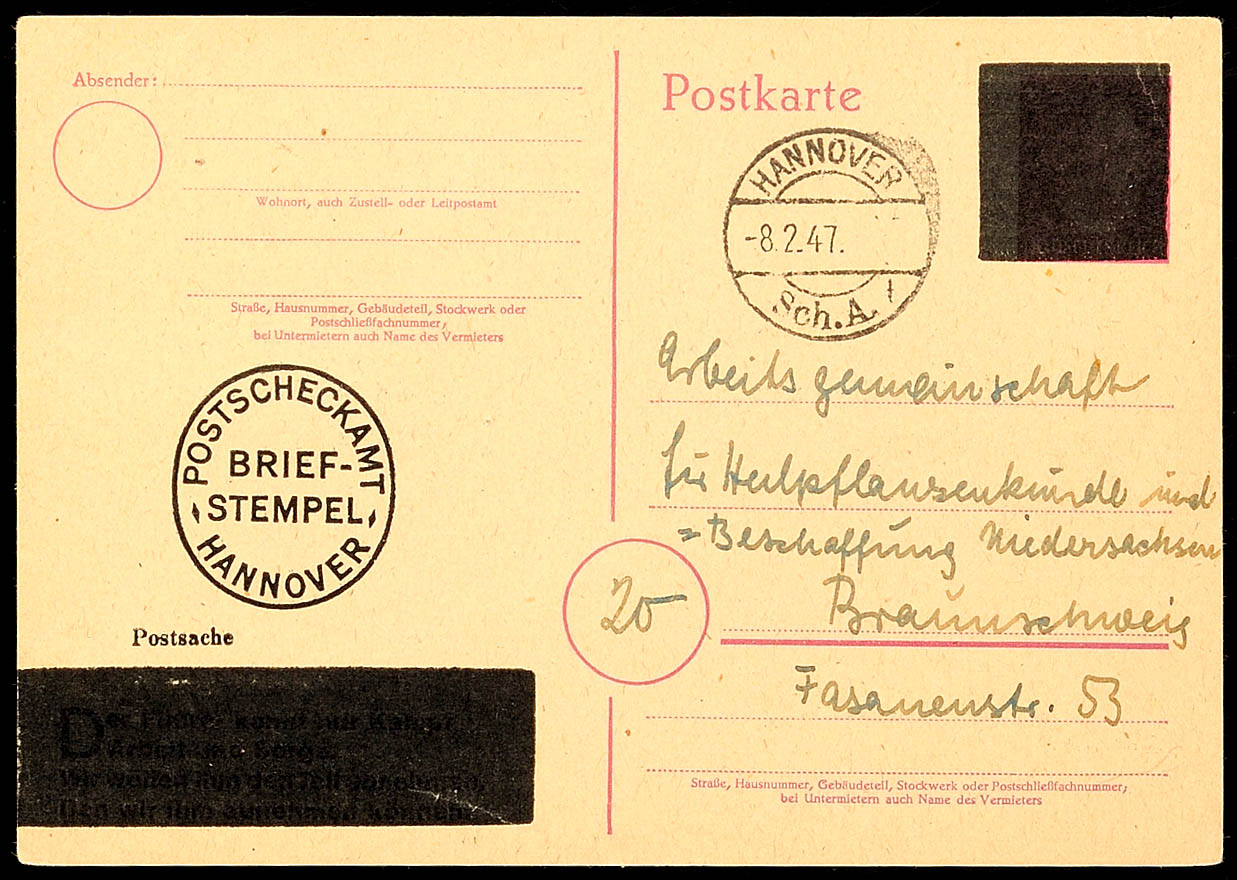 Absender:
Wohnort, auch Zustell- oder Leitpostamt
Straße, Hausnummer, Gebäudeteil, Stockwerk oder
Postschließfachnummer;
bei Untermietern auch Name des Vermieters
POSTSCHECKAMT
BRIEF-
STEMPEL
HANNOVER
Postsache
Der Führer kennt nur Kampf,
Arbeit und Sorge.
Wir wollen ihm den Teil abnehmen,
den wir ihm abnehmen können.
Postkarte
HANNOVER
-8.2.47.
Sch.A.
Arbeitsgemeinschaft
für Heilpflanzenkunde und
=Beschaffung Niedersachsen
20
Braunschweig
Fasanenstr. 53
Straße, Hausnummer, Gebäudeteil, Stockwerk oder Postschließfachnummer;
bei Untermietern auch Name des Vermieters